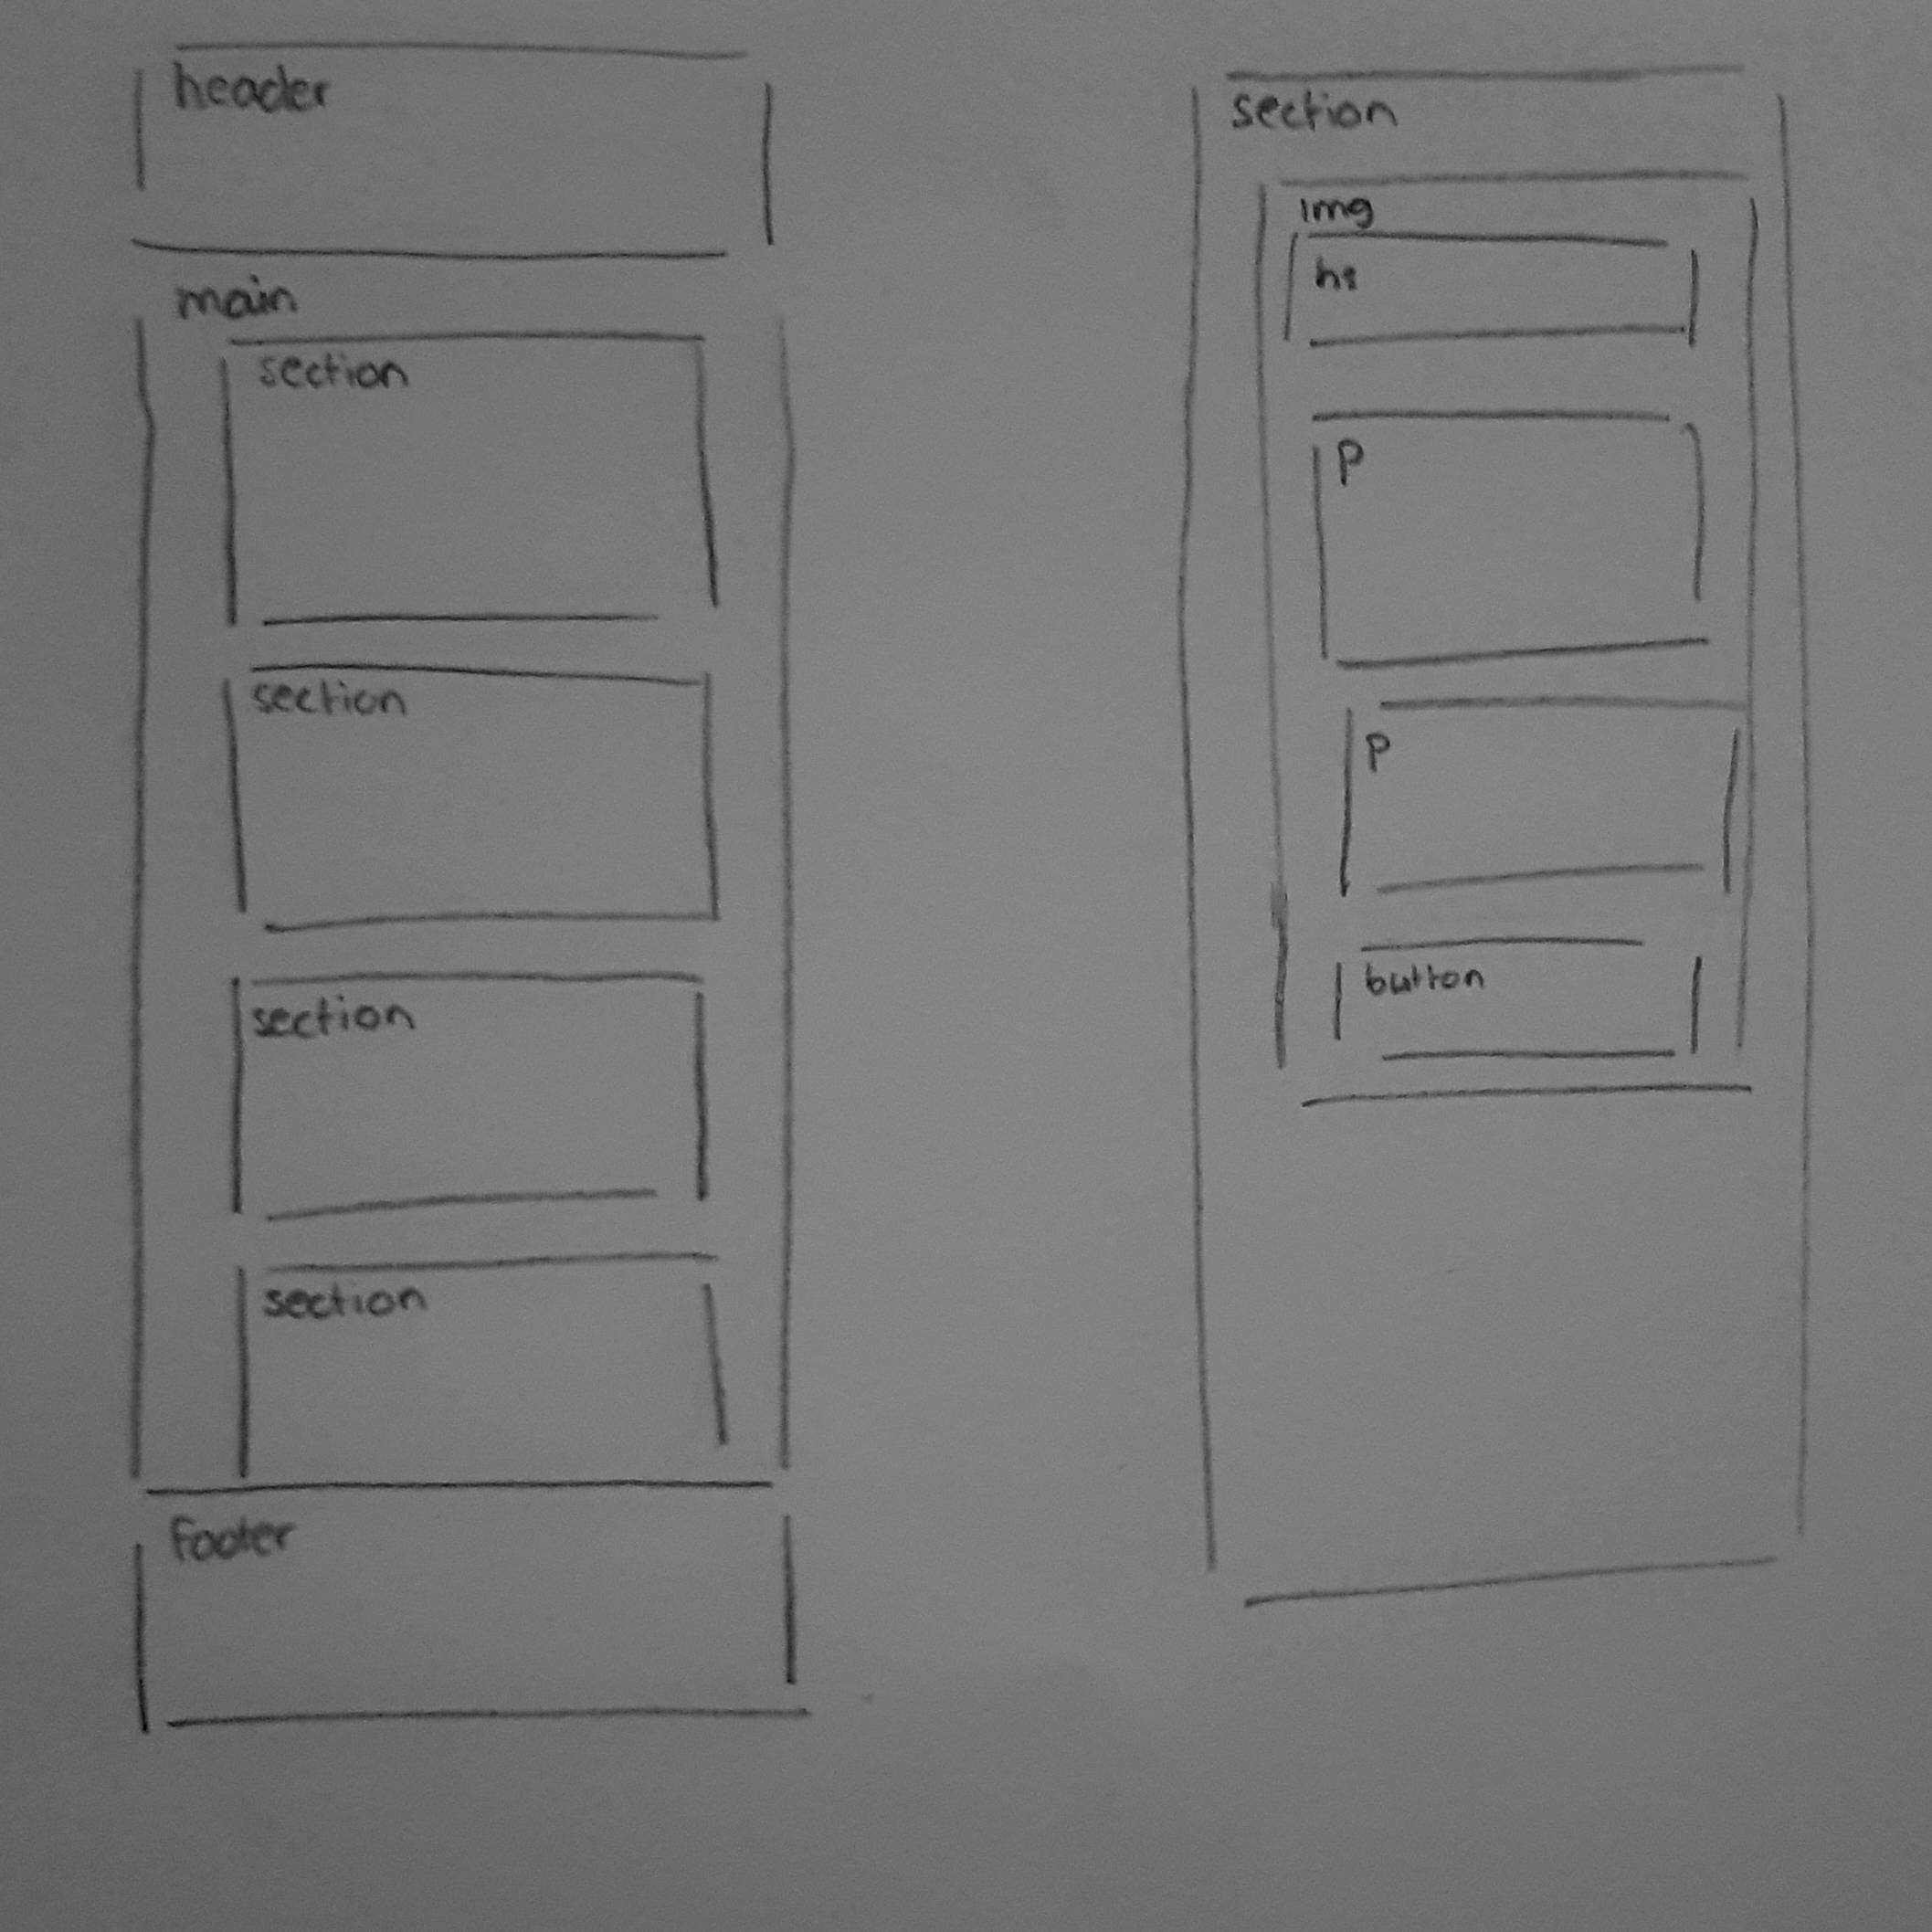 header
main
section
section
section
section
footer
section
img
h1
p
p
button